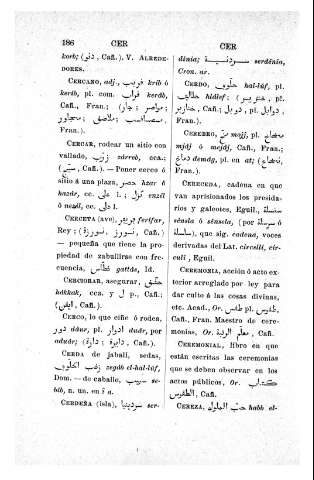 186 CER
kerb; (دنو, Cañ.). V. ALREDE-
DORES.
CERCANO, adj, قريب krib ó
kerib, pl. com. قراب keráb,
Cañ., Fran.; (جار; مواصر;
متصاقب; ملاصق; مجاور,
Fran.).
CERCAR, rodear un sitio con
vallado, زرّب zárreb, cca.;
(سيّج, Cañ.). — Poner cerco ó
sitio á una plaza, حصر hzar ó
hazár, cca. على l.; نزل enzil
ó nezil, cca. على l.
CERCETA (ave) ferifar,
Rey; (نورز; نورزة, Cañ.)
— pequeña que tiene la pro-
piedad de zabullirse con fre-
cuencia, غطّاس gattás, Id.
CERCIORAR, asegurar, حقّق
hákkak, cca. y ل p., Cañ.;
(ايقن, Cañ.).
CERCO, lo que ciñe ó rodea,
دور dáur, pl. ادوار duár, por
aduár; (دارة; دايرة, Cañ.).
CERDA de jabalí, sedas,
زغب الحلّوف zegáb el-hal-lúf,
Dom. — de caballo, سبيب se-
bib, n. un. en ة a.
CERDEÑA (isla), سردينيا ser-
CER
dánia; سردنية serdénia,
Crón. nr.
CERDO, حلّوف hal-lúf, pl.
حلاليف hláléf; (خنزير, pl.
خنازير, Cañ.; دوبل, pl. دوابل,
Fran.).
CEREBRO, مخّ mojj, pl. مخاخ
mjáj ó mejáj, Cañ., Fran.;
دماغ demág, pl. en at; (نخاع,
Fran.).
CERECEDA, cadena en que
van aprisionados los presida-
rios y galeotes, Eguil., سلسلة
sénsla ó sénsela, (por سنسلة ó
سلسلة), que sig. cadena, voces
derivadas del Lat. circelli, cir-
culi, Eguil.
CEREMONIA, acción ó acto ex-
terior arreglado por ley para
dar culto á las cosas divinas,
etc. Acad., Or. طقس pl. طقوس,
Cañ., Fran. Maestro de cere-
monias, Or. معلّم الرتبة, Cañ.
CEREMONIAL, libro en que
están escritas las ceremonias
que se deben observar en los
actos públicos, Or. كتاب
الطقوس, Cañ.
CEREZA, حبّ الملوك habb el-